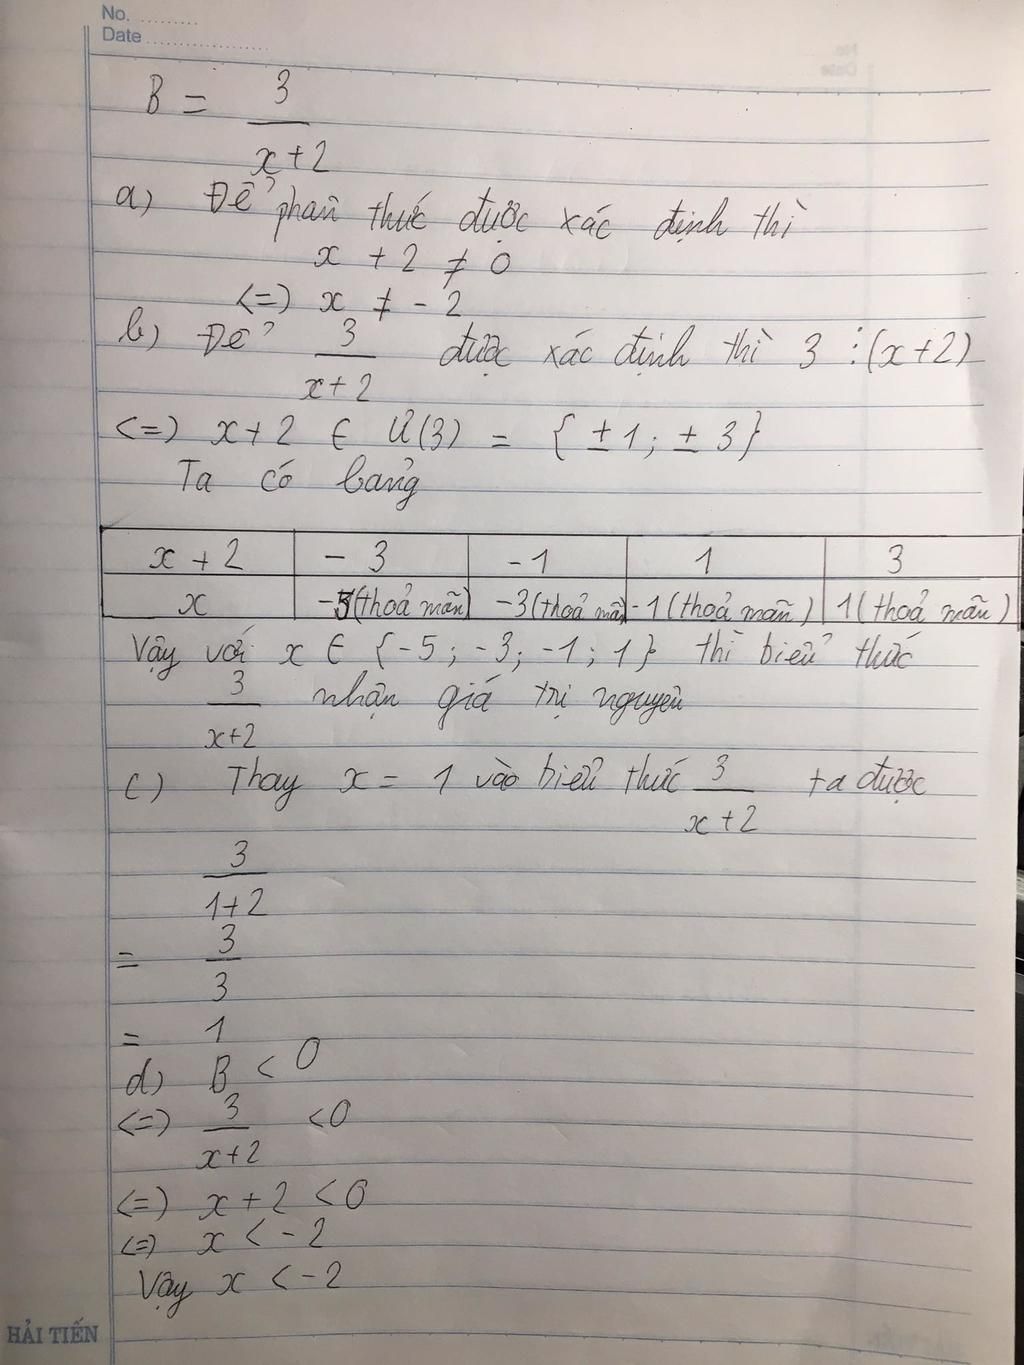 No. .........
Date ..................
B = 3/(x+2)
a) Để phân thức được xác định thì
x + 2 ≠ 0
<=> x ≠ -2
b) Để 3/(x+2) được xác định thì 3 ⋮ (x+2)
<=> x+2 ∈ Ư(3) = {±1; ±3}
Ta có bảng
x + 2 | -3 | -1 | 1 | 3
x | -5 (thoả mãn) | -3 (thoả mãn) | -1 (thoả mãn) | 1 (thoả mãn)
Vậy với x ∈ {-5; -3; -1; 1} thì biểu thức
3/(x+2) nhận giá trị nguyên
c) Thay x = 1 vào biểu thức 3/(x+2) ta được
3/(1+2)
= 3/3
= 1
d) B < 0
<=> 3/(x+2) < 0
<=> x + 2 < 0
<=> x < -2
Vậy x < -2
HẢI TIẾN